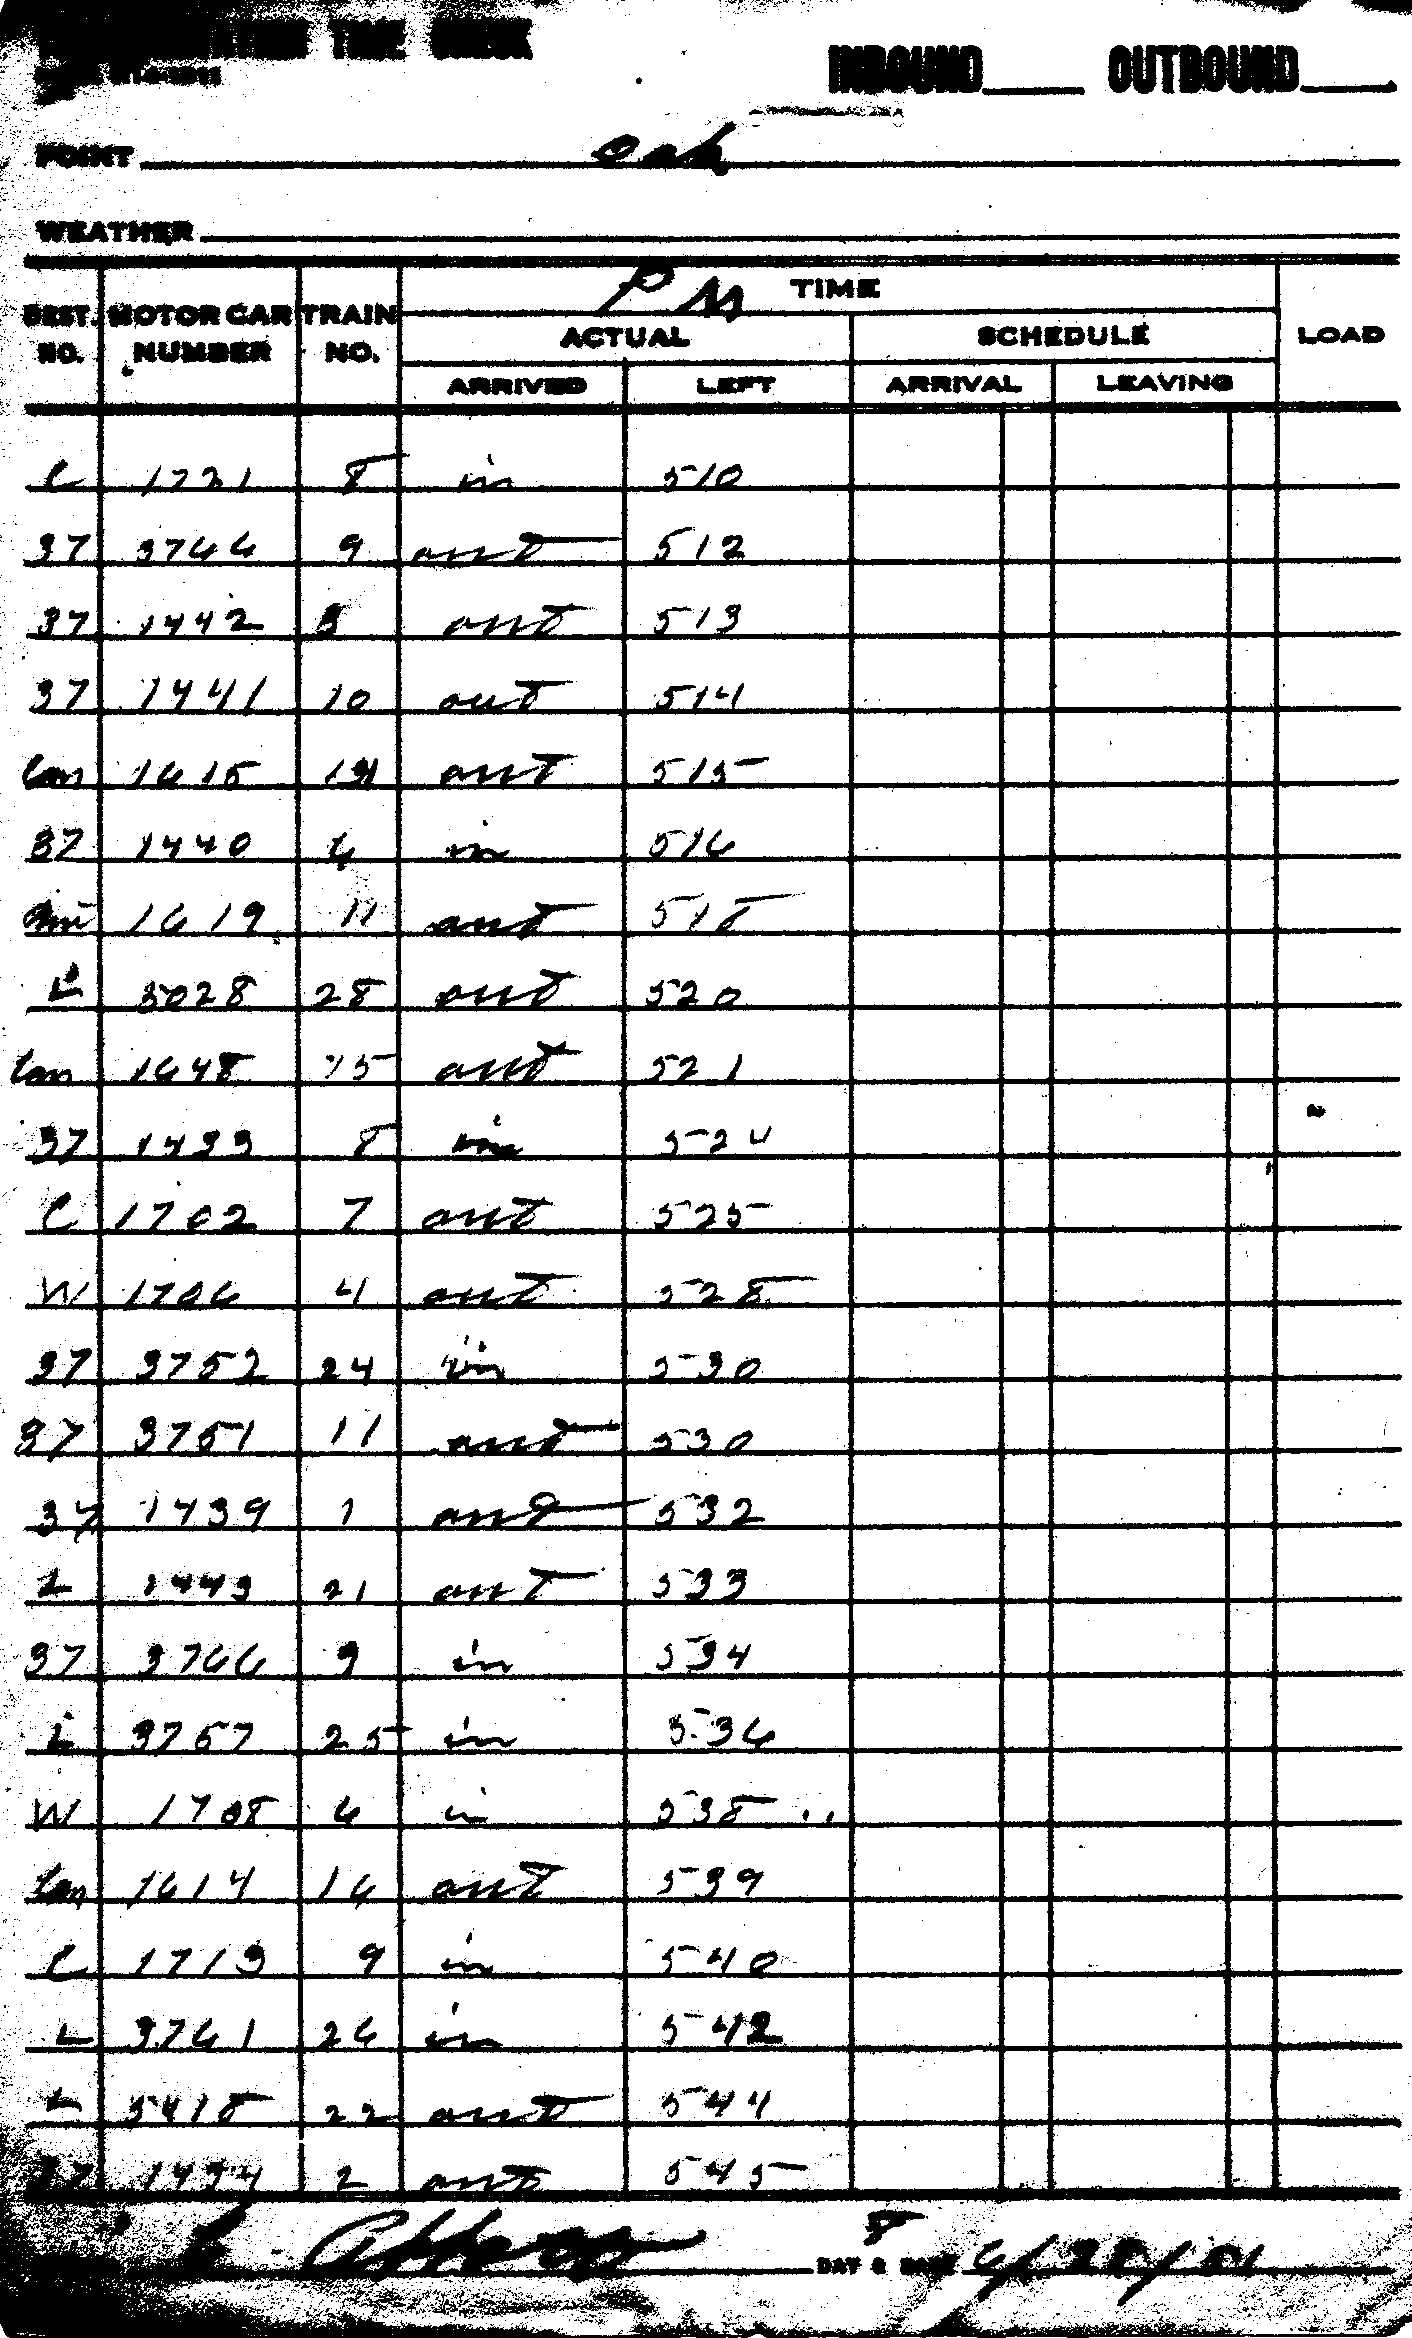 TIME CHECK
INBOUND____ OUTBOUND____
POINT Oak
WEATHER
PM TIME
DEST. NO. MOTOR CAR NUMBER TRAIN NO. ACTUAL SCHEDULE LOAD
ARRIVED LEFT ARRIVAL LEAVING
C 1721 8 in 510
37 3766 9 out 512
37 1442 5 out 513
37 1441 10 out 514
Can 1615 out 515
37 1440 6 in 516
1619 11 out 518
L 5028 28 out 520
Can 1648 15 out 521
37 1433 8 in 524
C 1702 7 out 525
W 1706 4 out 528
37 3752 24 in 530
37 3751 11 out 530
37 1439 1 out 532
L 1443 21 out 533
37 3766 9 in 534
L 3757 25 in 536
W 1708 6 in 538
Can 1614 16 out 539
C 1713 9 in 540
L 3761 26 in 542
L 5418 22 out 544
37 1434 2 out 545
DAY & DATE 6/28/51